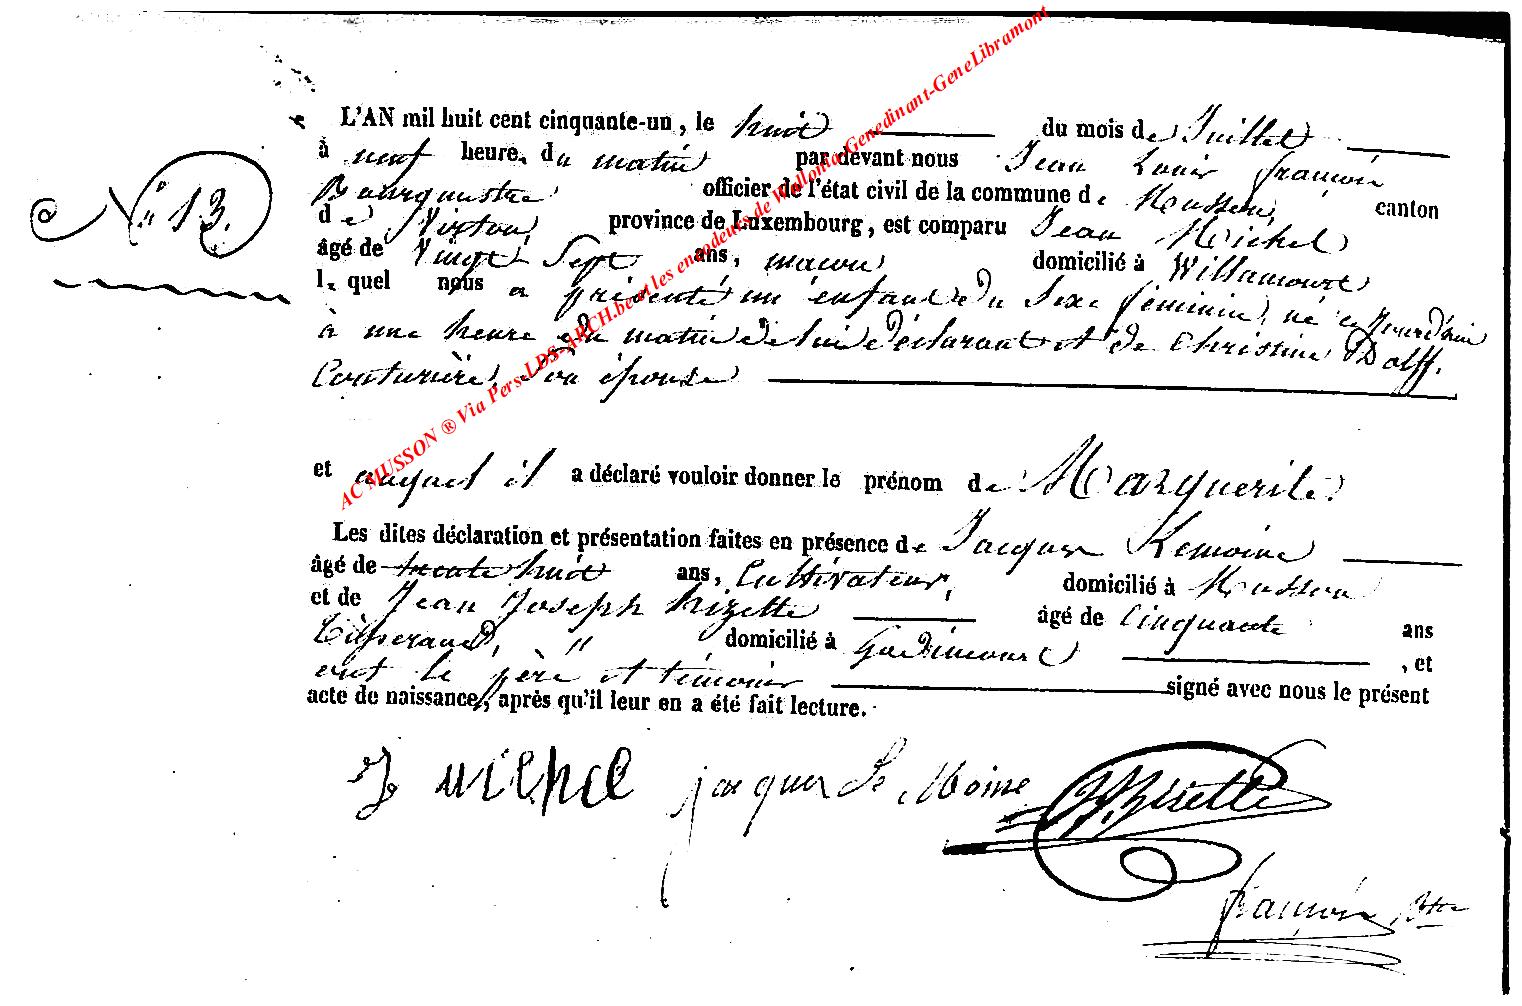 L'AN mil huit cent cinquante-un, le huit du mois de Juillet
à neuf heure. du matin par devant nous Jean Louis françois
Bourgmestre officier de l'état civil de la commune de Musson, canton
de Virton, province de Luxembourg, est comparu Jean Michel
âgé de Vingt Sept ans, macon domicilié à Willancourt
lequel nous a présenté un enfant du Sexe féminin, né ce Jourd'hui
à une heure du matin de lui déclarant et de Christine Dolff.
Couturière, son épouse
N° 13.
et auquel il a déclaré vouloir donner le prénom de Marguerite.
Les dites déclaration et présentation faites en présence de Jacques Lemoine
âgé de trente huit ans, Cultivateur, domicilié à Musson
et de Jean Joseph hizette âgé de Cinquante ans
Tisserand, " domicilié à Godincourt, et
ont le père et témoins signé avec nous le présent
acte de naissance, après qu'il leur en a été fait lecture.
J Michel jacques Le Moine JJ hizette
françois, Btre
AC MUSSON ® Via Pers-LDS-ARCH.be et les encodeurs de Wallonia-Genedinant-GeneLibramont